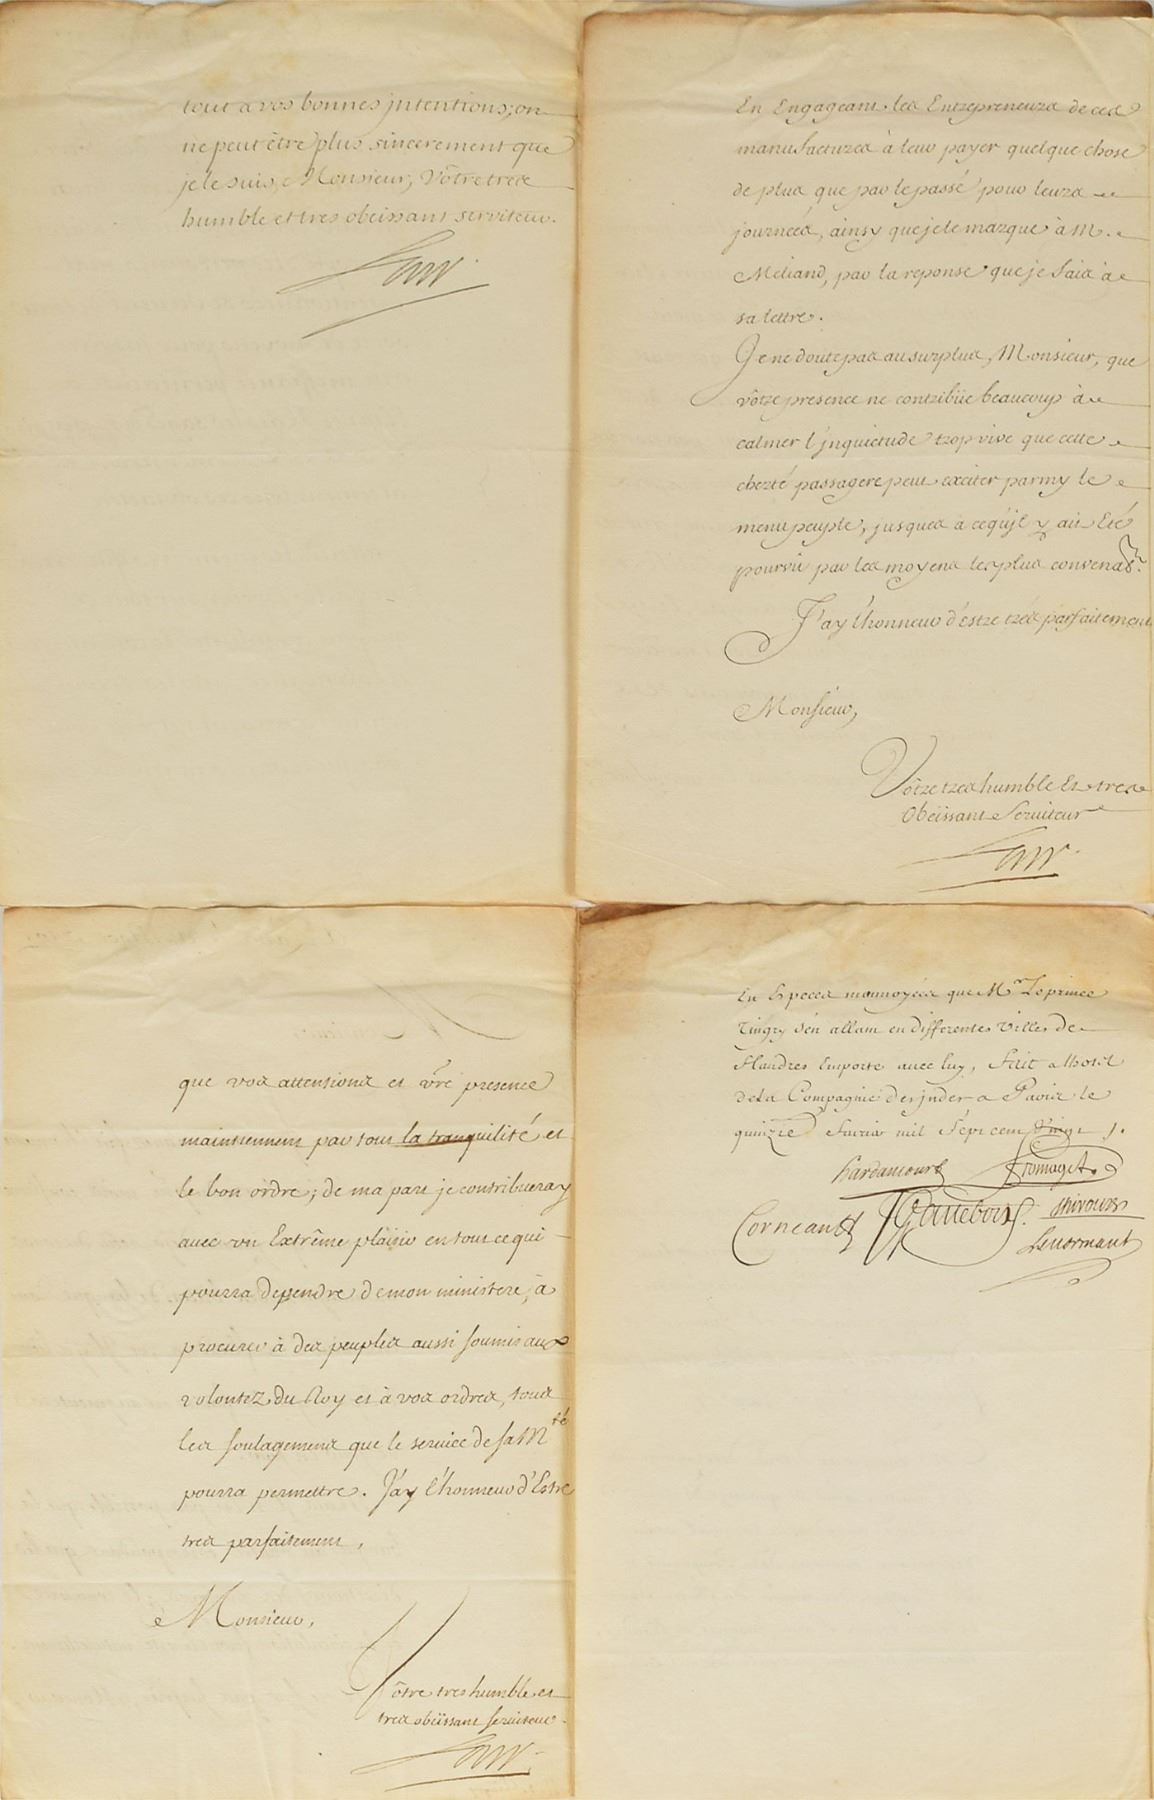 tout a vos bonnes jntentions; on
ne peut être plus sincerement que
je le suis, Monsieur, Vôtre tres
humble et tres obeissant serviteur.
Law
En Engageant les Entrepreneurs de ces
manufactures à leur payer quelque chose
de plus que par le passé pour leurs
journées, ainsy que je le marque à M.
Meliand, par la reponse que je fais à
sa lettre.
Je ne doute pas au surplus, Monsieur, que
vôtre presence ne contribüe beaucoup à
calmer l'jnquietude trop vive que cette
cherté passagere peut exciter parmy le
menu peuple, jusques à ce qu'jl y ait Eté
pourvû par les moyens les plus convenab.
J'ay l'honneur d'estre très parfaitement
Monsieur,
Vôtre tres humble Et tres
Obeissant Serviteur
Law
que vos attentions et vre presence
maintiennent par tout la tranquilité et
le bon ordre; de ma part je contribueray
avec un Extrême plaisir en tout ce qui
pourra dependre de mon ministere, à
procurer à des peuples aussi soumis aux
volontez du Roy et à vos ordres, tous
les soulagemens que le service de Sa Mté
pourra permettre. J'ay l'honneur d'Estre
tres parfaitement,
Monsieur,
Vôtre tres humble et
tres obeissant serviteur.
Law
En Especes monnoyées que Mr Le prince
Tingry s'en allant en differentes Villes de
Flandres Emporte avec luy, Fait a lhotel
de la Compagnie des jndes a Paris le
quinzie Fevrier mil Sept cent Vingt
hardancourt Fromaget
Corneau
Lenormant